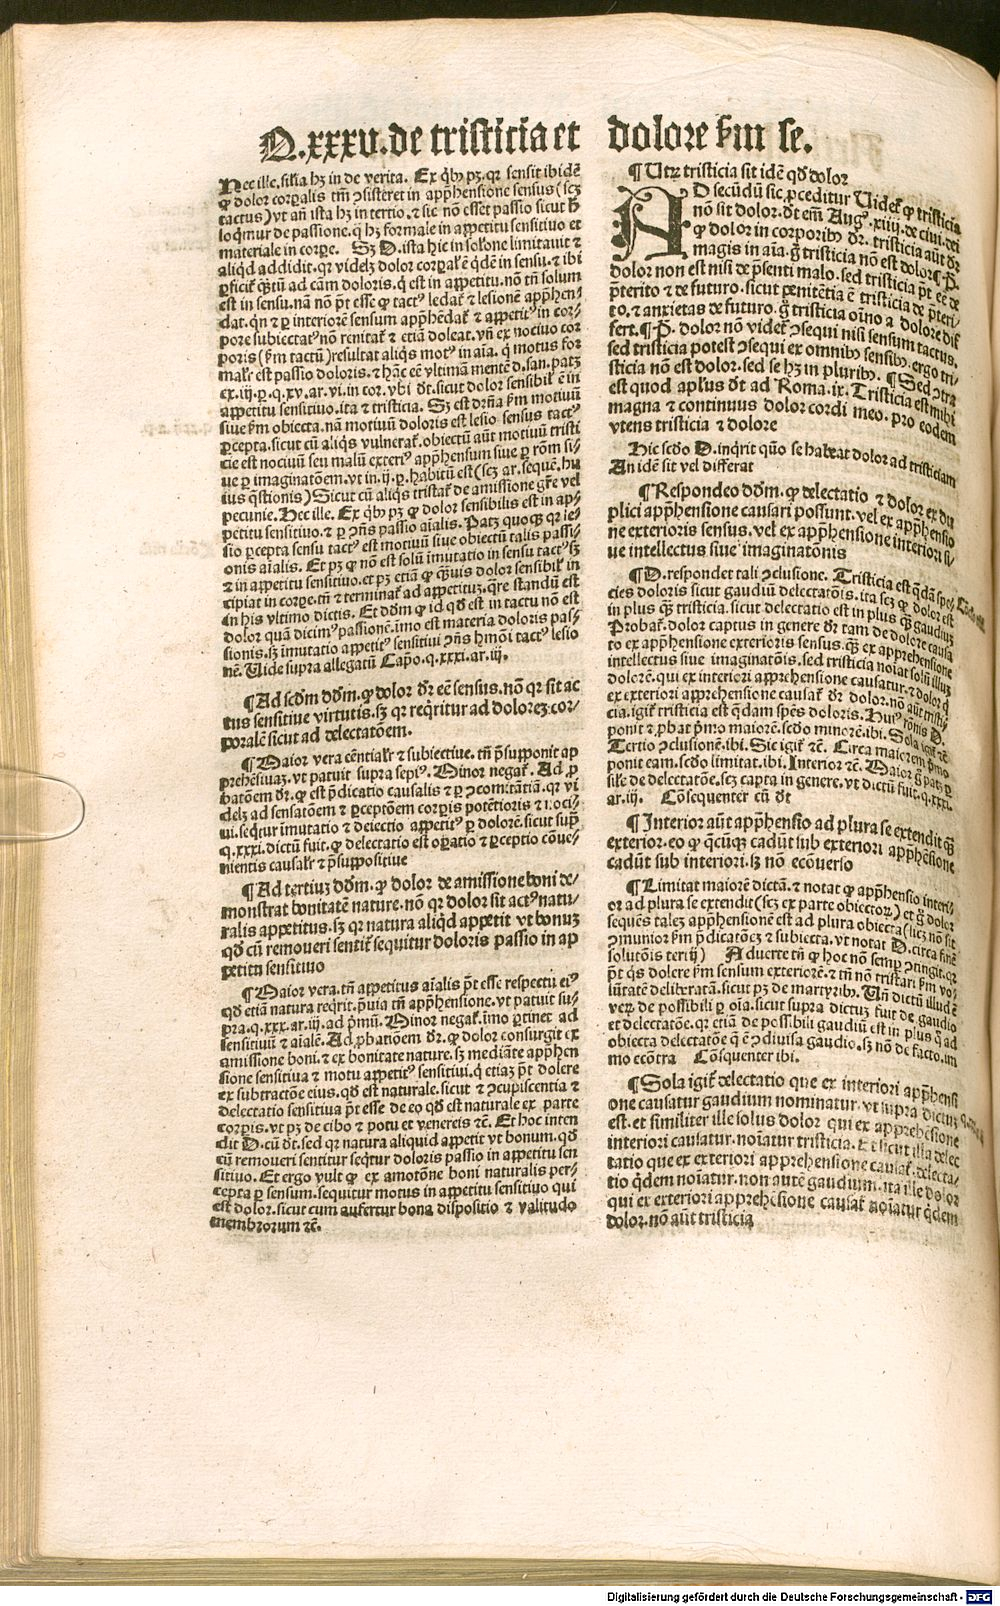 Q.xxxv.de tristicia et dolore ẜm se.
Hec ille. silia hꝫ in de verita. Ex qͥbꝰ pꝫ. qꝛ sensit ibidē
ꝙ dolor corꝑalis tm̄ ↄsisteret in appͤhensione sensus (scꝫ
tactus) vt añ ista hꝫ in tertio. ⁊ sic nō esset passio sicut hͨ
loqͥmur de passione. q̄ hꝫ formale in appetitu sensitiuo et
materiale in corpꝛe. Sꝫ D. ista hic in solone limitauit ⁊
aliqͥd addidit. qꝛ videlꝫ dolor corꝑalē qͥdē in sensu. ⁊ ibi
ꝑficit̉ qͣꝫtū ad cām doloris. qͥ est in appetitu. nō tn̄ solum
est in sensu. nā nō pōt esse ꝙ tactꝰ ledat̉ ⁊ lesionē appͤhen-
dat. qn̄ ⁊ ꝑ interiorē sensum appͤhēdat̉ ⁊ appetitꝰ in cor-
pore subiectatꝰ nō renitat̉ ⁊ etiā doleat. vn̄ ex nociuo cor
poris (ẜm tactū) resultat aliqͥs motꝰ in aīa. qͥ motus for
malr̄ est passio doloris. ⁊ hāc eē vltimā mentē d. san. patꝫ
ex .iij. p. q. xv. ar. vi. in cor. vbi dt̄. sicut dolor sensibil̓ ē in
appetitu sensitiuo. ita ⁊ tristicia. Sꝫ est dr̄na ẜm motiuū
siue ẜm obiecta. nā motiuū doloris est lesio sensus tactꝰ
ꝑcepta. sicut cū aliqͥs vulnerat̉. obiectū aūt motiuū tristi
cie est nociuū seu malū exteriꝰ appͤhensum siue ꝑ rōm si-
ue ꝑ imaginatōem. vt in .ij. p. habitū est (scꝫ ar. sequē. hu
ius qͥstionis) Sicut cū aliqͥs tristat̉ de amissione gr̄e vel
pecunie. Hec ille. Ex qͥbꝰ pꝫ ꝙ dolor sensibilis est in ap-
petitu sensitiuo. ⁊ ꝑ ↄn̄s passio aīalis. Patꝫ quoqꝫ qꝛ le-
sio ꝑcepta sensu tactꝰ est motiuū siue obiectū talis passi-
onis aīalis. Et pꝫ ꝙ nō est solū īmutatio in sensu tactꝰ sꝫ
⁊ in appetitu sensitiuo. et pꝫ etiā ꝙ qͣꝫuis dolor sensibil̓ in
cipiat in corpꝛe. tn̄ ⁊ terminat̉ ad appetitū. qͣre standū est
in his vltimo dictis. Et dd̄m ꝙ id qd̓ est in tactu nō est
dolor quā dicimꝰ passionē. īmo est materia doloris pas-
sionis. sꝫ īmutatio appetitꝰ sensitiui ↄn̄s hmōi tactꝰ lesio
nē. Vide supra allegatū Capͦo. q. xxxi. ar. iij.
¶ Ad scd̓m dd̄m. ꝙ dolor dr̄ eē sensus. nō qꝛ sit ac
tus sensitiue virtutis. sꝫ qꝛ reqͥritur ad dolorez. cor-
poralē sicut ad delectatōem.
¶ Maior vera eēntialr̄ ⁊ subiectiue. tn̄ pͤsupponit ap
prehēsiuaꝫ. vt patuit supra sepiꝰ. Minor negat̉. Ad ꝓ
batōem dr̄. ꝙ est pͤdicatio causalis ⁊ ꝑ ↄcomitātiā. qꝛ vi
delꝫ ad sensatōem ⁊ ꝑceptōem corpꝛis potētioris ⁊ noci-
ui. seqͥtur īmutatio ⁊ deiectio appetitꝰ ꝑ dolorē. sicut supͣ
q. xxxi. dictū fuit. ꝙ delectatio est oꝑatio ⁊ ꝑceptio cōue-
nientis causalr̄ ⁊ pͤsuppositiue
¶ Ad tertiuꝫ dd̄m. ꝙ dolor de amissione boni de-
monstrat bonitatē nature. non qꝛ dolor sit actꝰ natu-
ralis appetitus. sꝫ qꝛ natura aliqͥd appetit vt bonuꝫ
qd̓ cū remoueri sentit̉ sequitur doloris passio in ap
petitu sensitiuo
¶ Maior vera. tn̄ appetitus aīalis pōt esse respectu eiꝰ
qd̓ etiā natura reqͥrit. pͤuia tn̄ appͤhensione. vt patuit su-
pra. q. xxx. ar. iij. ad pͥmū. Minor negat̉. īmo ꝑtinet ad
sensitiuū ⁊ aīalē. Ad ꝓbatiōem dr̄. ꝙ dolor consurgit ex
amissione boni. ⁊ ex bonitate nature. sꝫ mediāte appͤhen
sione sensitiua ⁊ motu appetitꝰ sensitiui. qͥ etiaꝫ pōt dolere
ex subtractōe eius. qd̓ est naturale. sicut ⁊ ↄcupiscentia ⁊
delectatio sensitiua pōt esse de eo qd̓ est naturale ex parte
corpꝛis. vt pꝫ de cibo ⁊ potu et venereis ⁊c̄. Et hoc inten
dit D. cū dt̄. sed qꝛ natura aliquid appetit vt bonum. qd̓
cū remoueri sentitur seqͥtur doloris passio in appetitu sen
sitiuo. Et ergo vult ꝙ ex amotōne boni naturalis per-
cepta ꝑ sensum. sequitur motus in appetitu sensitiuo qui
est dolor. sicut cum aufertur bona dispositio ⁊ valitudo
membrorum ⁊c̄.
¶ Vtꝝ tristicia sit idē qd̓ dolor
AD secūdū sic ꝓceditur Videt̉ ꝙ tristicia
nō sit dolor. dt̄ em̄ Augꝰ. xiiij. de ciui. dei
ꝙ dolor in corporibꝰ dr̄. tristicia aūt dr̄
magis in aīa. gͦ tristicia nō est dolor ¶ Pͤ.
dolor non est nisi de pͤsenti malo. sed tristicia pōt eē de
pͤterito ⁊ de futuro. sicut penitētia ē tristicia de pͤteri-
to. ⁊ anxietas de futuro. gͦ tristicia oīno a dolore dif
fert. ¶ Pͤ. dolor nō videt̉ ↄsequi nisi sensum tactus.
sed tristicia potest ↄsequi ex omnibꝰ sensibꝰ. ergo tri-
sticia nō est dolor. sed se hꝫ in pluribꝰ. ¶ Sed ↄtra
est quod apl̓us dt̄ ad Roma. ix. Tristicia est mihi
magna ⁊ continuus dolor cordi meo. pro eodem
vtens tristicia ⁊ dolore
Hic scd̓o D. inqͥrit quō se habeat dolor ad tristiciam
An idē sit vel differat
¶ Respondeo dd̄m. ꝙ delectatio ⁊ dolor ex du
plici appͤhensione causari possunt. vel ex appͤhensio
ne exterioris sensus. vel ex appͤhensione interiori si-
ue intellectus siue imaginatōnis
¶ D. respondet tali ↄclusione. Tristicia est qͥdā spe-
cies doloris sicut gaudiū delectatōis. ita scꝫ ꝙ dolor est
in plus qͣꝫ tristicia. sicut delectatio est in plus qͣꝫ gaudiuꝫ
Probat̉. dolor captus in genere dr̄ tam de dolore causa
to ex appͤhensione exterioris sensus. qͣꝫ ex apprehensione
intellectus siue imaginatōis. sed tristicia noīat solū illuꝫ
dolorē. qui ex interiori apprehensione causatur. ⁊ dolor qͥ
ex exteriori apprehensione causat̉ dr̄ dolor. nō aūt tristi-
cia. igit̉ tristicia est qͥdam spēs doloris. Huiꝰ rōnis D.
ponit ⁊ ꝓbat pͥmo maiorē. scd̓o minorē. ibi. Sola igit̉ ⁊c̄
Tertio ↄclusionē. ibi. Sic igit̉ ⁊c̄. Circa maiorem pͥmo
ponit eam. scd̓o limitat. ibi. Interior ⁊c̄. Maior gͦ patꝫ ꝑ
sil̓e de delectatōe. scꝫ capta in genere. vt dictū fuit. q. xxxi.
ar. iij. Cōsequenter cū dt̄
¶ Interior aūt appͤhensio ad plura se extendit qͣꝫ
exterior. eo ꝙ qͥcūqꝫ cadūt sub exteriori appͤhēsione
cadūt sub interiori. sꝫ nō ecōuerso
¶ Limitat maiorē dictā. ⁊ notat ꝙ appͤhensio interi-
or ad plura se extendit (scꝫ ex parte obiectoꝝ) et gͦ dolor
sequēs taleꝫ appͤhensionē est ad plura obiecta (licꝫ nō sit
ↄmunior ẜm pͤdicatōeꝫ ⁊ subiecta. vt notat D. circa finē
solutōis terij) Aduerte tn̄ ꝙ hoc nō semꝑ ↄtingit. qꝛ
pōt qͥs dolere ẜm sensum exteriorē. ⁊ tn̄ nō tristari ẜm vo-
lūtatē deliberatā. sicut pꝫ de martyribꝰ. Vn̄ dictū illud ē
veꝝ de possibili ꝑ oīa. sicut supra dictuꝫ fuit de gaudio
et delectatōe. qꝛ etiā de possibili gaudiū est in plus qͥ ad
obiecta delectatōe q̄ ē ↄdiuisa gaudio. sꝫ nō de facto. im
mo ecōtra Cōsequenter ibi.
¶ Sola igit̉ delectatio que ex interiori appͤhensi
one causatur gaudium nominatur. vt supra dictuꝫ
est. et similiter ille solus dolor qui ex apprehēsione
interiori causatur. noīatur tristicia. Et sicut illa delec
tatio que ex exteriori apprehensione causat̉. delecta-
tio qͥdem noīatur. non autē gaudium. ita ille dolor
qui ex exteriori apprehēsione causat̉ noīatur qͥdem
dolor. nō aūt tristicia
Digitalisierung gefördert durch die Deutsche Forschungsgemeinschaft - DFG